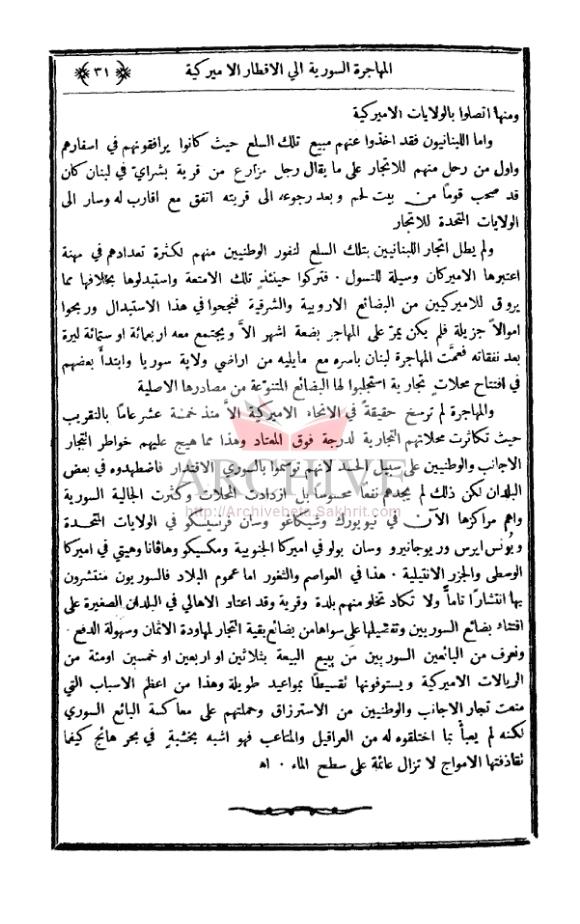 المهاجرة السورية الى الاقطار الاميركية ﴿٣١﴾
ومنها اتصلوا بالولايات الاميركية
واما اللبنانيون فقد اخذوا عنهم مبيع تلك السلع حيث كانوا يرافقونهم في اسفارهم
واول من رحل منهم للاتجار على ما يقال رجل مزارع من قرية بشراي في لبنان كان
قد صحب قومًا من بيت لحم وبعد رجوعه الى قريته اتفق مع اقارب له وسار الى
الولايات المتحدة للاتجار
ولم يطل اتجار اللبنانيين بتلك السلع لنفور الوطنيين منهم لكثرة تعدادهم في مهنة
اعتبرها الاميركان وسيلة للتسول . فتركوا حينئذٍ تلك الامتعة واستبدلوها بخلافها مما
يروق للاميركيين من البضائع الاروبية والشرقية فنجحوا في هذا الاستبدال وربحوا
اموالاً جزيلة فلم يكن يمرّ على المهاجر بضعة اشهر الاَّ ويجتمع معه اربعمائة او ستمائة ليرة
بعد نفقاته فعمَّت المهاجرة لبنان باسره مع مايليه من اراضي ولاية سوريا وابتدأ بعضهم
في افتتاح محلاتٍ تجارية استجلبوا لها البضائع المتنوّعة من مصادرها الاصلية
والمهاجرة لم ترسخ حقيقةً في الانحاء الاميركية الاَّ منذ خمسة عشر عامًا بالتقريب
حيث تكاثرت محلاتهم التجارية لدرجة فوق المعتاد وهذا مما هيج عليهم خواطر التجار
الاجانب والوطنيين على سبيل الحسد لانهم توسَّموا بالسوري الاقتدار فاضطهدوه في بعض
البلدان لكن ذلك لم يجدهم نفعًا محسوسًا بل ازدادت المحلات وكثرت الجالية السورية
واهم مراكزها الآن في نيويورك وشيكاغو وسان فرنسيسكو في الولايات المتحدة
وبُونس ايرس وريوجانيرو وسان بولو في اميركا الجنوبية ومكسيكو وهاڤانا وهيتي في اميركا
الوسطى والجزر الانتيلية . هذا في العواصم والثغور اما عموم البلاد فالسوريون منتشرون
بها انتشارًا تامًا ولا تكاد تخلو منهم بلدة وقرية وقد اعتاد الاهالي في البلدان الصغيرة على
اقتناء بضائع السوريين وتفضيلها على سواها من بضائع بقية التجار لمهاودة الاثمان وسهولة الدفع .
ونعرف من البائعين السوريين من يبيع البيعة بثلاثين او اربعين او خمسين اومئة من
الريالات الاميركية ويستوفونها تقسيطًا بمواعيد طويلة وهذا من اعظم الاسباب التي
منعت تجار الاجانب والوطنيين من الاسترزاق وحملتهم على معاكسة البائع السوري
لكنه لم يعبأ بما اختلقوه له من العراقيل والمتاعب فهو اشبه بخشبةٍ في بحر هائج كيفما
تقاذفتها الامواج لا تزال عائمة على سطح الماء . اه
ARCHIVE
http://Archivebeta.Sakhrit.com